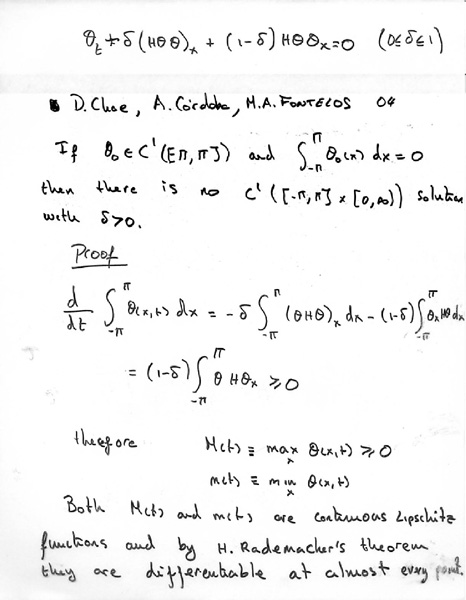 θ_t + δ(Hθ θ)_x + (1-δ) Hθ θ_x = 0 (0≤δ≤1)
D. Chae, A. Córdoba, M.A. FONTELOS 04
If θ_0 ∈ C^1([-π, π]) and ∫_{-π}^{π} θ_0(x) dx = 0
then there is no C^1([-π, π] × [0, ∞)) solution
with δ>0.
Proof
d/dt ∫_{-π}^{π} θ(x,t) dx = -δ ∫_{-π}^{π} (θHθ)_x dx - (1-δ) ∫_{-π}^{π} θ_x Hθ dx
= (1-δ) ∫_{-π}^{π} θ Hθ_x ≥ 0
therefore M(t) ≡ max_x θ(x,t) ≥ 0
m(t) ≡ min_x θ(x,t)
Both M(t) and m(t) are continuous Lipschitz
functions and by H. Rademacher's theorem
they are differentiable at almost every point.